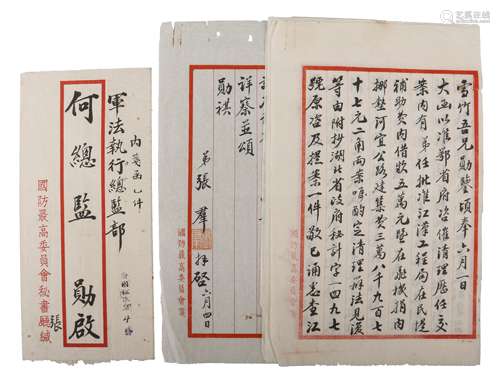 雪竹吾兄勛鑒頃奉六月一日
大函以准鄂省府咨催清理歷任交
案內有弟任批准江漢工程局在民堤
補助費內借款五萬元暨在 捐內
挪墊 宜公路建築費三萬八千九百七
十七元二角兩案囑酌定清理辦法見復
等由附抄湖北省政府秘計字一四九七
號原咨及提案一件敬已誦悉查江
詳察並頌
勛祺
弟張羣 拜啓六月四日
國防最高委員會箋
內箋函乙件
軍法執行總監部
何總監 勛啟
國防最高委員會秘書廳緘
張